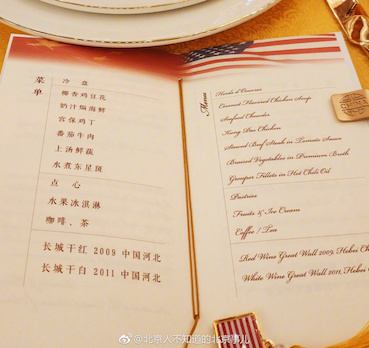 菜单
冷 盘
椰香鸡豆花
奶汁焗海鲜
宫保鸡丁
番茄牛肉
上汤鲜蔬
水煮东星斑
点 心
水果冰淇淋
咖啡、茶
长城干红 2009 中国河北
长城干白 2011 中国河北
Menu
Hors d'Oeuvres
Coconut Flavored Chicken Soup
Seafood Chowder
Kung Pao Chicken
Stewed Beef Steak in Tomato Sauce
Braised Vegetables in Premium Broth
Grouper Fillets in Hot Chili Oil
Pastries
Fruits & Ice Cream
Coffee / Tea
Red Wine Great Wall 2009, Hebei
White Wine Great Wall 2011, Hebei
@北京人不知道的北京事儿